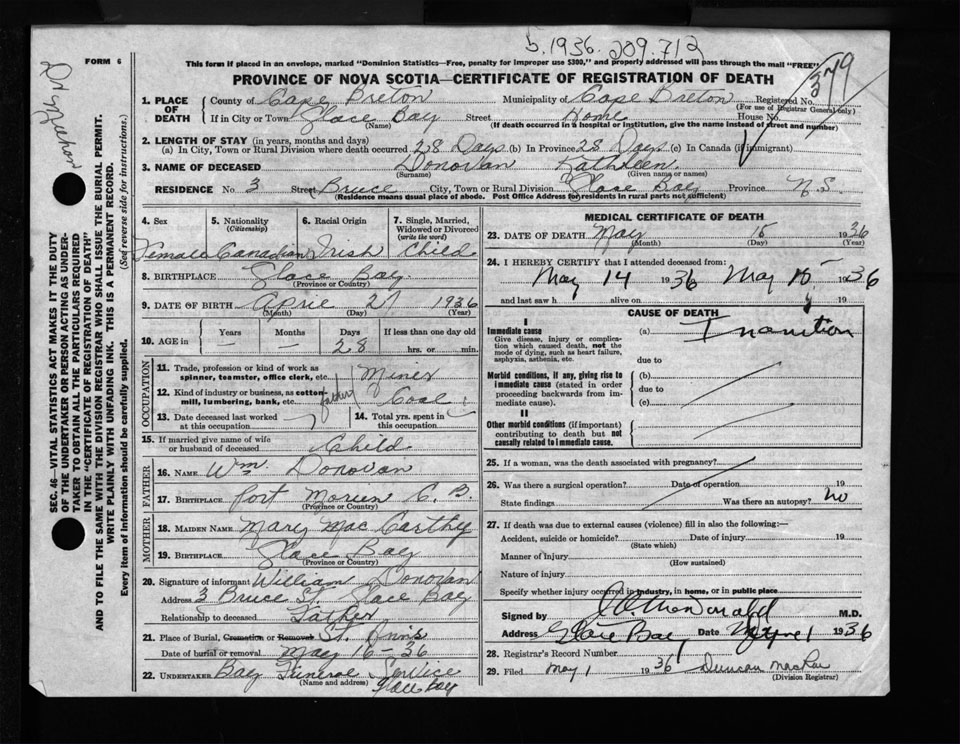 5.1936. 209.712
FORM 6
This form if placed in an envelope, marked "Dominion Statistics—Free, penalty for improper use $300," and properly addressed will pass through the mail "FREE"
PROVINCE OF NOVA SCOTIA—CERTIFICATE OF REGISTRATION OF DEATH
379
1. PLACE OF DEATH
County of Cape Breton Municipality of Cape Breton Registered No.
(For use of Registrar General only)
If in City or Town Glace Bay Street Home House No.
(Name) (If death occurred in a hospital or institution, give the name instead of street and number)
2. LENGTH OF STAY (in years, months and days)
(a) In City, Town or Rural Division where death occurred 28 Days (b) In Province 28 Days (c) In Canada (if immigrant)
3. NAME OF DECEASED Donovan Kathleen
(Surname) (Given name or names)
RESIDENCE No 3 Street Bruce City, Town or Rural Division Glace Bay Province N.S.
(Residence means usual place of abode. Post Office Address for residents in rural parts not sufficient)
SEC. 46—VITAL STATISTICS ACT MAKES IT THE DUTY
OF THE UNDERTAKER OR PERSON ACTING AS UNDER-
TAKER TO OBTAIN ALL THE PARTICULARS REQUIRED
IN THE "CERTIFICATE OF REGISTRATION OF DEATH"
AND TO FILE THE SAME WITH THE DIVISION REGISTRAR WHO SHALL ISSUE THE BURIAL PERMIT.
WRITE PLAINLY WITH UNFADING INK. THIS IS A PERMANENT RECORD.
Every item of information should be carefully supplied. (See reverse side for instructions.)
4. Sex 5. Nationality (Citizenship) 6. Racial Origin 7. Single, Married, Widowed or Divorced (write the word)
Female Canadian Irish Child
8. BIRTHPLACE Glace Bay
(Province or Country)
9. DATE OF BIRTH April 27 1936
(Month) (Day) (Year)
10. AGE in Years Months Days If less than one day old
— — 28 hrs. or min.
OCCUPATION
11. Trade, profession or kind of work as spinner, teamster, office clerk, etc. Miner
12. Kind of industry or business, as cotton mill, lumbering, bank, etc. father Coal
13. Date deceased last worked at this occupation
14. Total yrs. spent in this occupation
15. If married give name of wife or husband of deceased Child
FATHER
16. NAME Wm. Donovan
17. BIRTHPLACE Port Morien C. B.
(Province or Country)
MOTHER
18. MAIDEN NAME Mary MacCarthy
19. BIRTHPLACE Glace Bay
(Province or Country)
20. Signature of informant William Donovan
Address 3 Bruce St. Glace Bay
Relationship to deceased Father
21. Place of Burial, Cremation or Removal St. Ann's
Date of burial or removal May 16-36
22. UNDERTAKER Bay Funeral Service
(Name and address) Glace Bay
MEDICAL CERTIFICATE OF DEATH
23. DATE OF DEATH May 15 1936
(Month) (Day) (Year)
24. I HEREBY CERTIFY that I attended deceased from:
May 14 1936 May 15 1936
and last saw h alive on 19
CAUSE OF DEATH
I
Immediate cause (a) Inanition
Give disease, injury or complication which caused death, not the mode of dying, such as heart failure, asphyxia, asthenia, etc.
due to
Morbid conditions, if any, giving rise to immediate cause (stated in order proceeding backwards from immediate cause).
(b)
due to
(c)
II
Other morbid conditions (if important) contributing to death but not causally related to immediate cause.
25. If a woman, was the death associated with pregnancy?
26. Was there a surgical operation? Date of operation 19
State findings Was there an autopsy? No
27. If death was due to external causes (violence) fill in also the following:—
Accident, suicide or homicide? Date of injury 19
(State which)
Manner of injury
(How sustained)
Nature of injury
Specify whether injury occurred in industry, in home, or in public place
Signed by MacDonald M.D.
Address Glace Bay Date 1936
28. Registrar's Record Number
29. Filed May 1 36 Duncan MacRae
(Division Registrar)